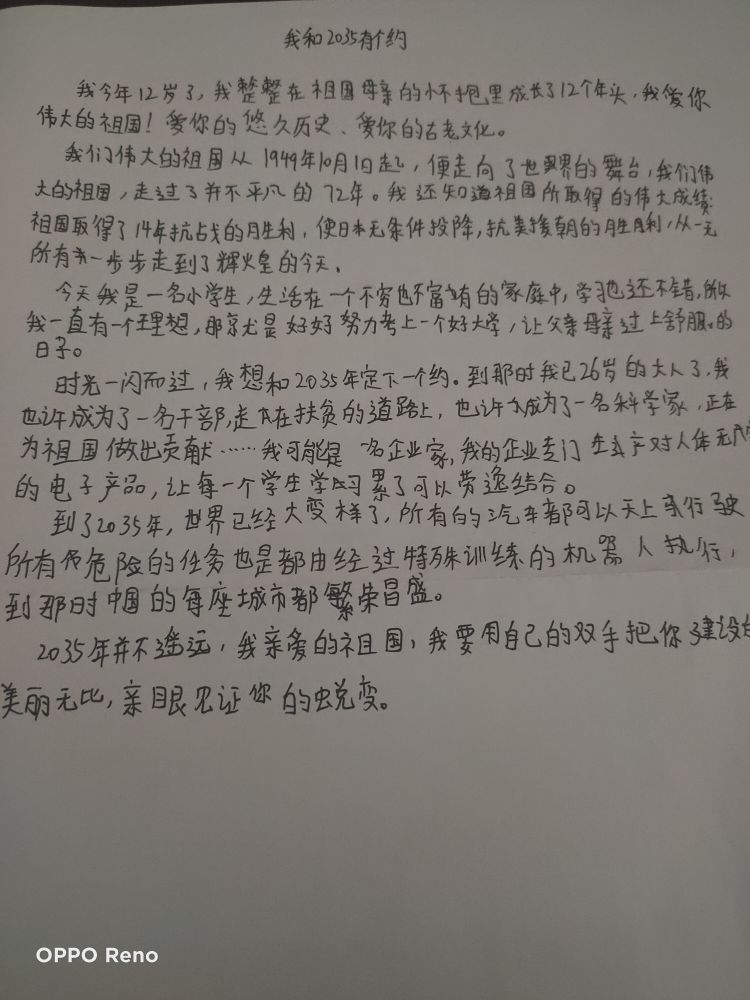 我和2035有个约
我今年12岁了，我整整在祖国母亲的怀抱里成长了12个年头，我爱你
伟大的祖国！爱你的悠久历史、爱你的古老文化。
我们伟大的祖国从1949年10月1日起，便走向了世界的舞台，我们伟
大的祖国，走过了并不平凡的72年。我还知道祖国所取得的伟大成绩：
祖国取得了14年抗战的胜利，使日本无条件投降，抗美援朝的胜利，从一无
所有一步步走到了辉煌的今天。
今天我是一名小学生，生活在一个不穷也不富有的家庭中，学习也还不错，所以
我一直有一个理想，那就是好好努力考上一个好大学，让父亲母亲过上舒服的
日子。
时光一闪而过，我想和2035年定下一个约。到那时我已26岁的大人了，我
也许成为了一名干部，走在扶贫的道路上，也许成为了一名科学家，正在
为祖国做出贡献……我可能是一名企业家，我的企业专门生产对人体无
的电子产品，让每一个学生学习累了可以劳逸结合。
到了2035年，世界已经大变样了，所有的汽车都可以天上行驶
所有危险的任务也是都由经过特殊训练的机器人执行，
到那时中国的每座城市都繁荣昌盛。
2035年并不遥远，我亲爱的祖国，我要用自己的双手把你建设的
美丽无比，亲眼见证你的蜕变。
OPPO Reno